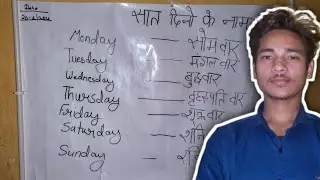 सात दिनो के नाम
Monday — सोमवार
Tuesday — मंगलवार
Wednesday — बुद्धवार
Thursday — बृहस्पति वार
Friday — शुक्रवार
Saturday —
Sunday —